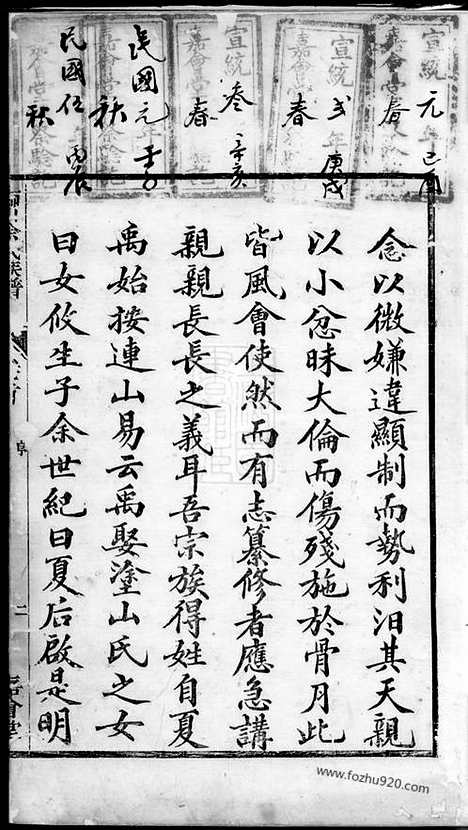 宣統元年己酉春
嘉會堂
宣統貳年庚戌春
嘉會堂
宣統叁年辛亥春
民國元年壬子秋
嘉會堂
民國伍年丙辰秋
嘉會堂
念以微嫌違顯制而勢利汩其天親
以小忿昧大倫而傷殘施於骨月此
皆風會使然而有志纂修者應急講
親親長長之義耳吾宗族得姓自夏
禹始按連山易云禹娶塗山氏之女
曰女攸生子余世紀曰夏后啟是明
余氏族譜
二
嘉會堂
www.fozhu920.com